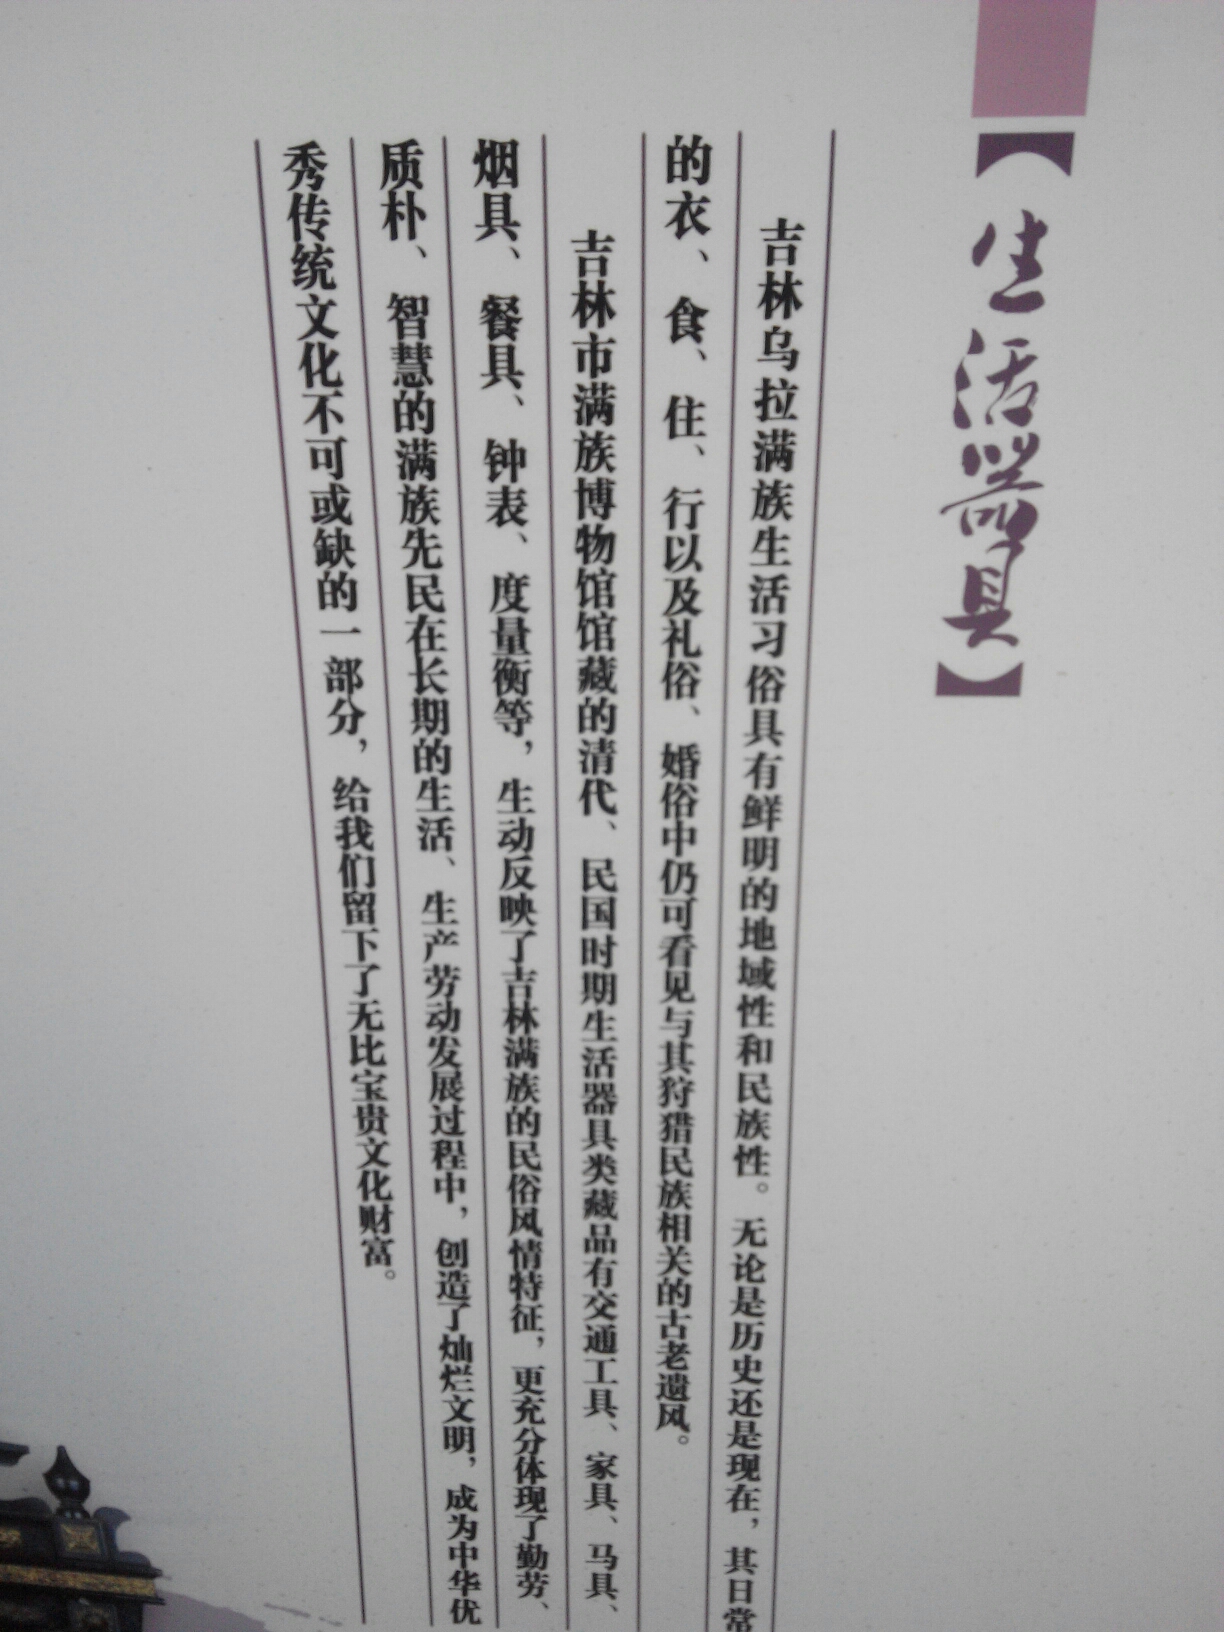 【生活器具】
吉林乌拉满族生活习俗具有鲜明的地域性和民族性。无论是历史还是现在，其日常
的衣、食、住、行以及礼俗、婚俗中仍可看见与其狩猎民族相关的古老遗风。
吉林市满族博物馆馆藏的清代、民国时期生活器具类藏品有交通工具、家具、马具、
烟具、餐具、钟表、度量衡等，生动反映了吉林满族的民俗风情特征，更充分体现了勤劳、
质朴、智慧的满族先民在长期的生活、生产劳动发展过程中，创造了灿烂文明，成为中华优
秀传统文化不可或缺的一部分，给我们留下了无比宝贵文化财富。